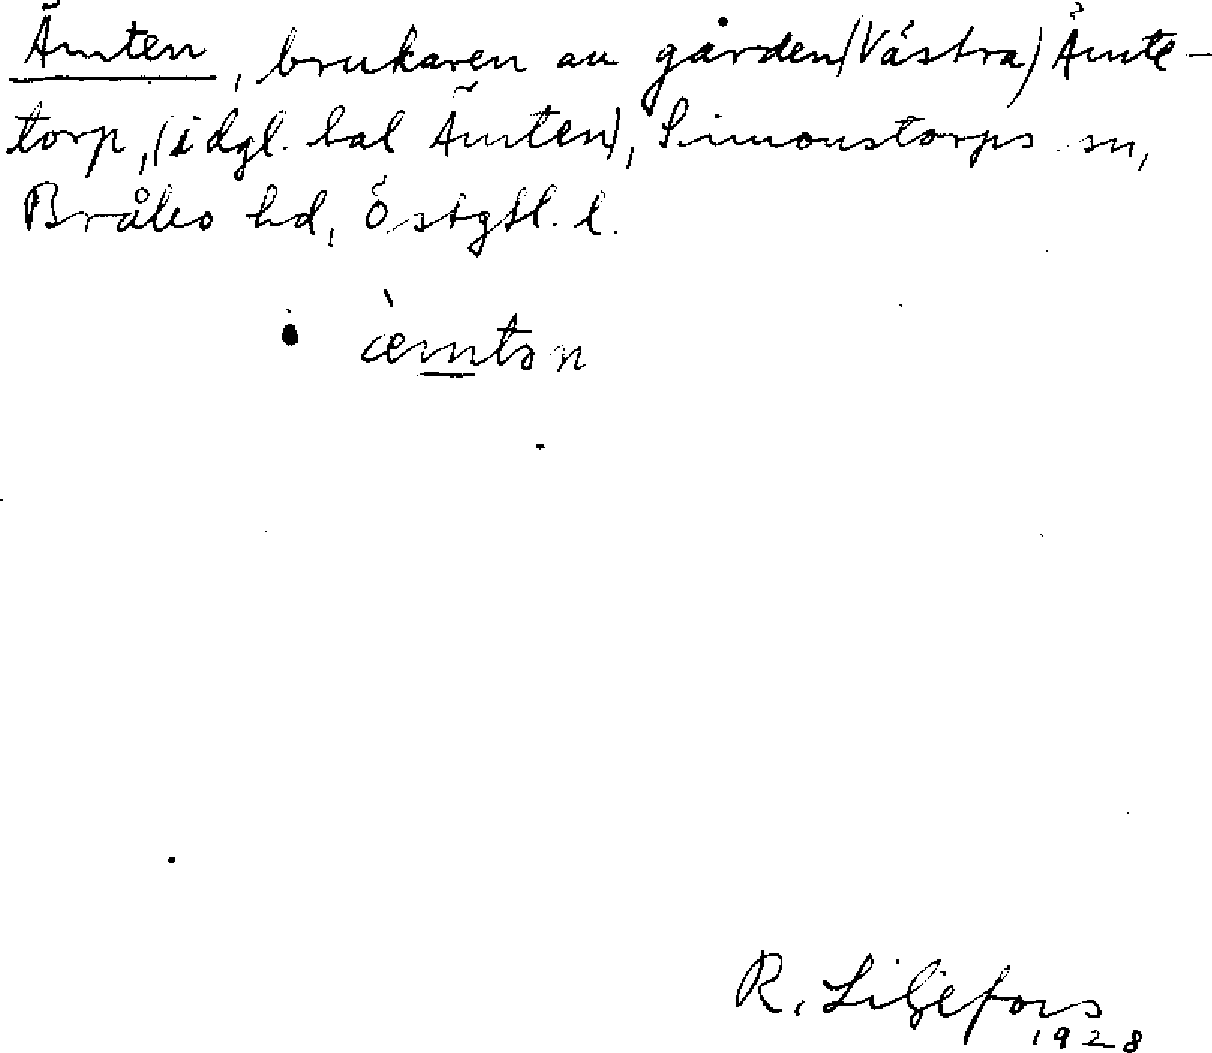 Ämten, brukaren av gården (Västra) Ämte-
torp, (i dgl. tal Ämten), Simonstorps sn,
Bråbo hd, Östgtl. l.
æ̀mtən
R. Liljefors
1928